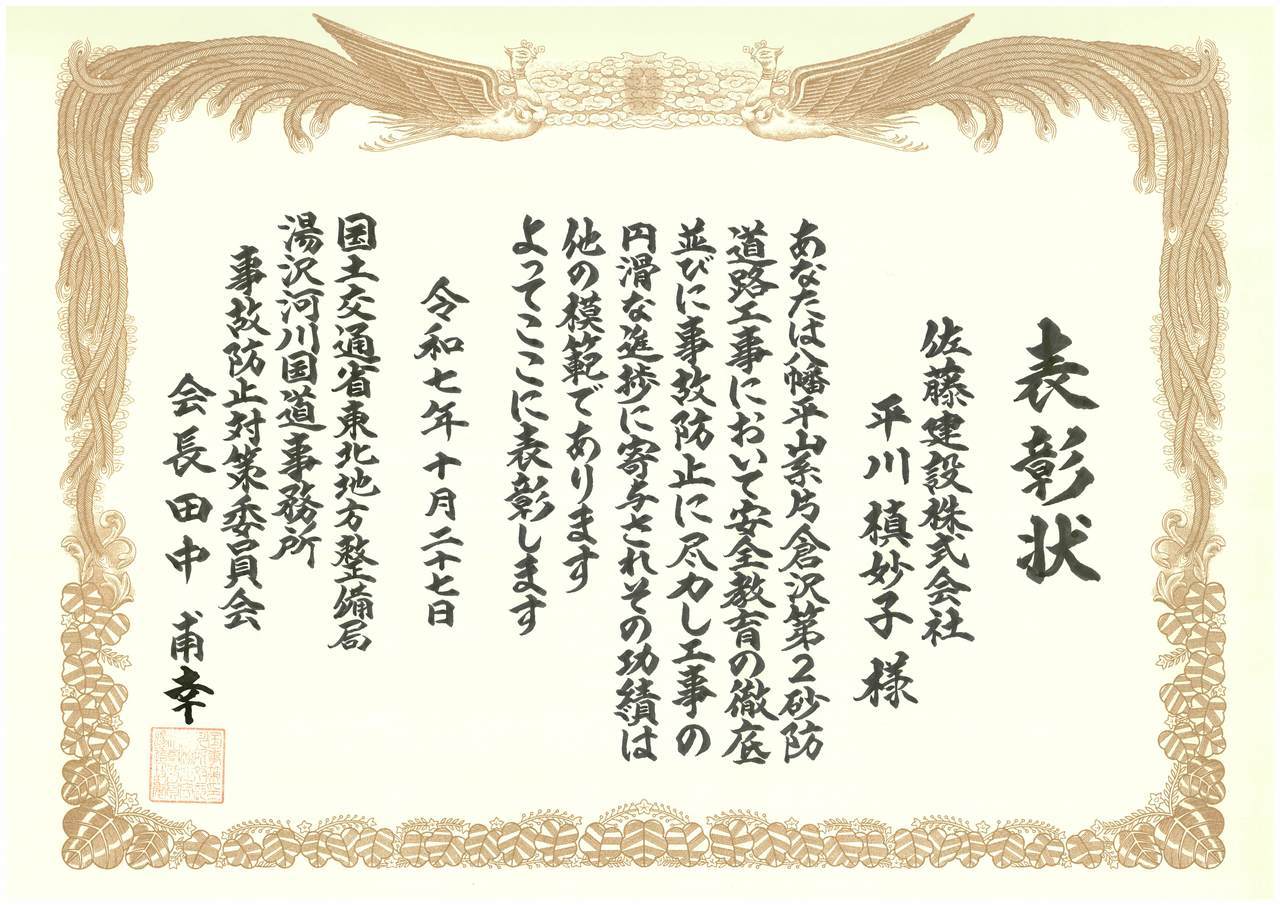 表彰状
佐藤建設株式会社
平川槙妙子様
あなたは八幡平山系片倉沢第2砂防
道路工事において安全教育の徹底
並びに事故防止に尽力し工事の
円滑な進捗に寄与されその功績は
他の模範であります
よってここに表彰します
令和七年十月二十七日
国土交通省東北地方整備局
湯沢河川国道事務所
事故防止対策委員会
会長田中甫幸